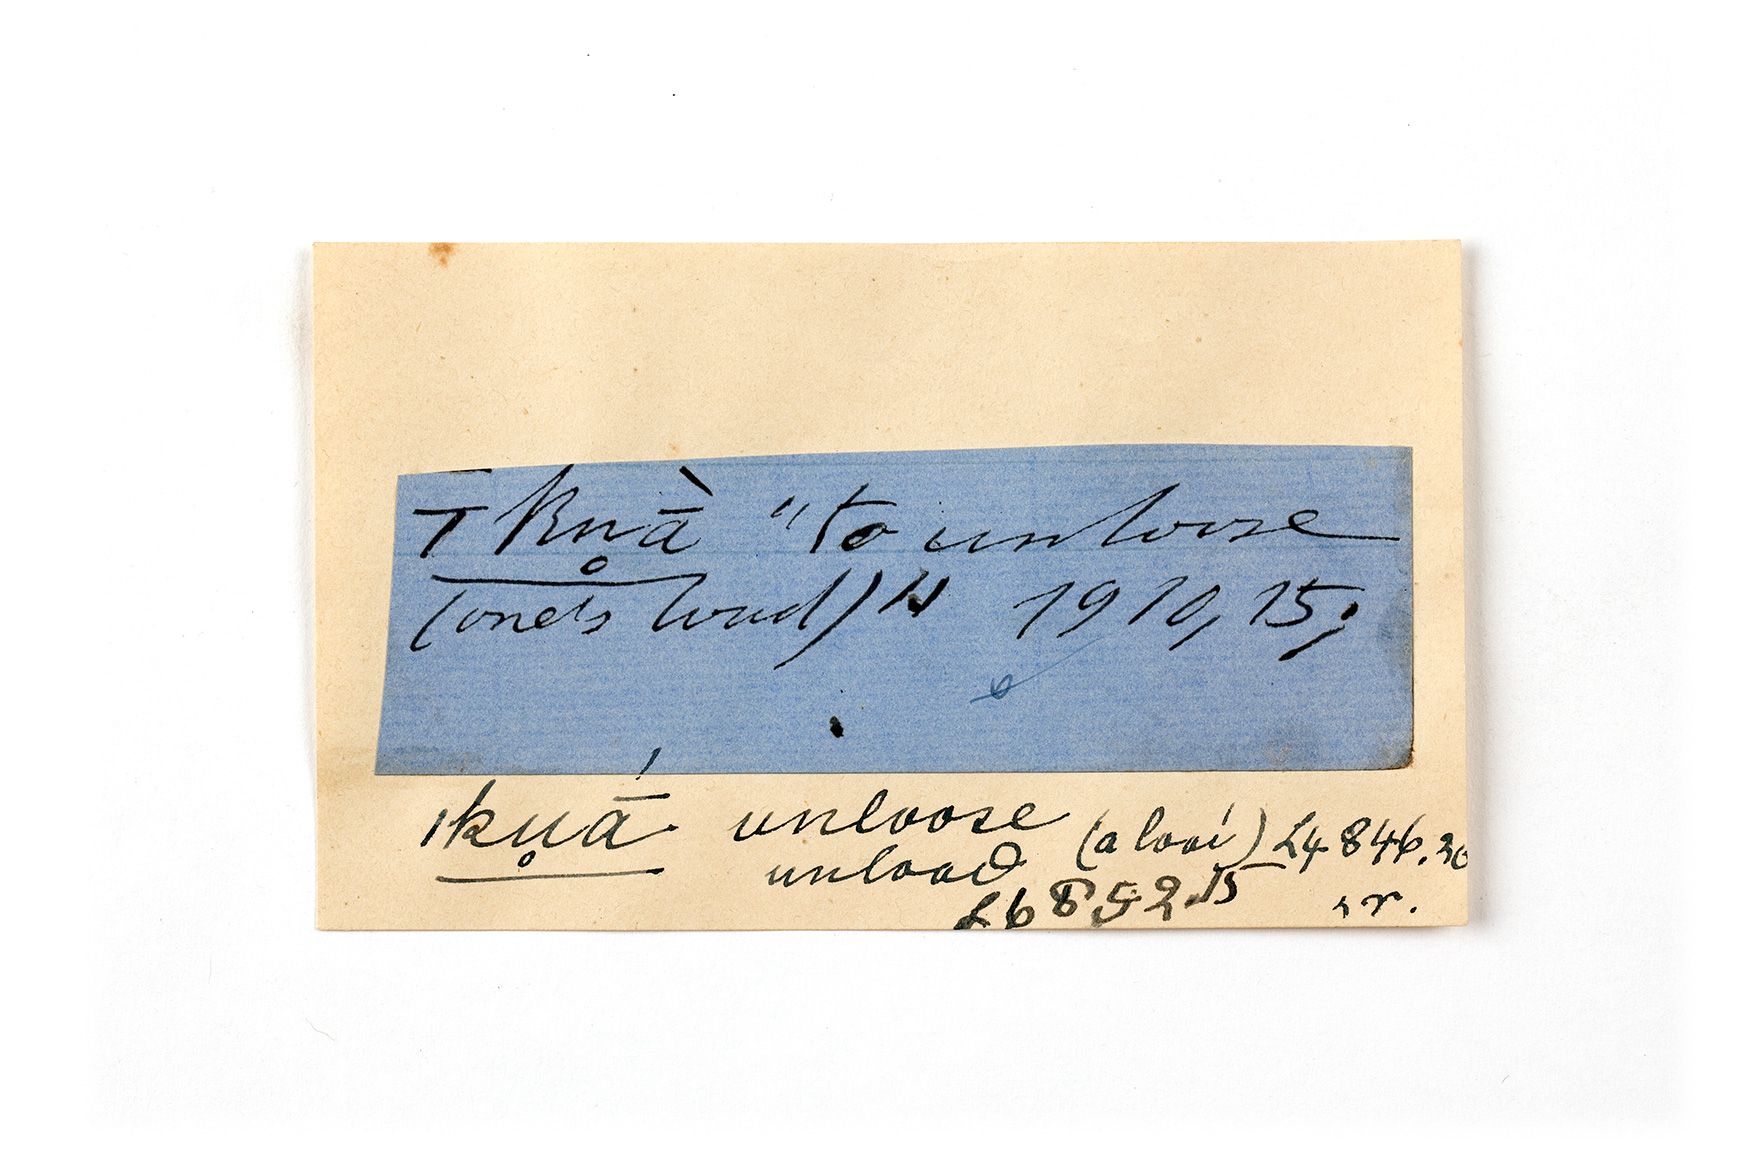 T k̥uā̀ "to unloose
(one's load)" 1910, 15;
ıku̥ā́ unloose (a load) L4 846.20
unload
L6 852.15 r.